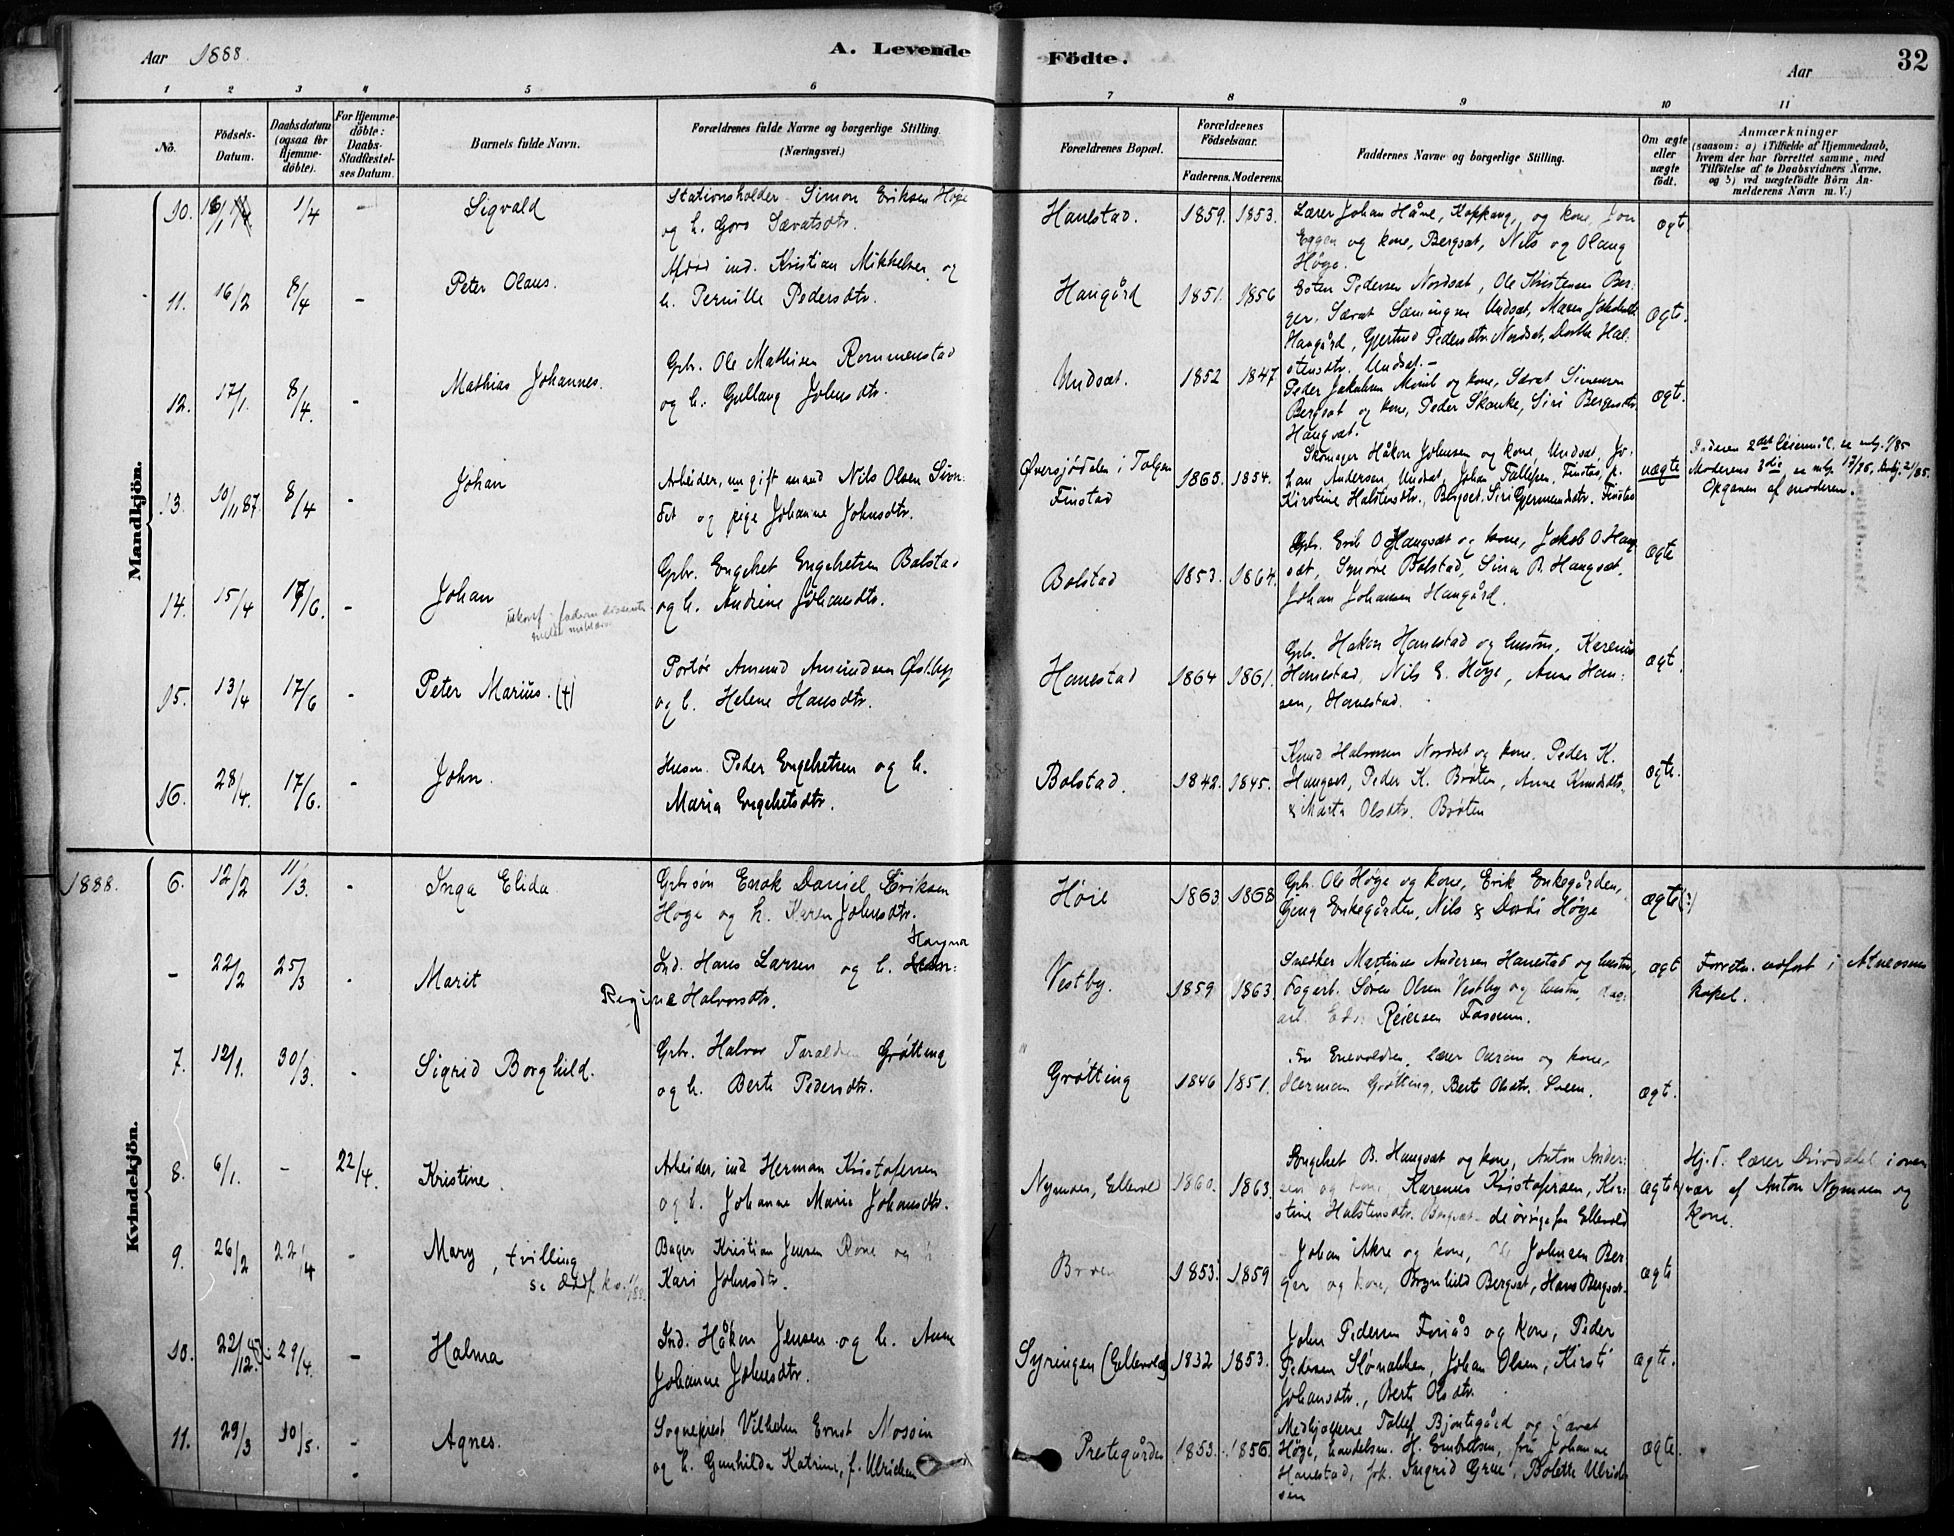 Aar 1888.
A. Levende
Födte.
Aar
32
1 2 3 4 5 6 7 8 9 10 11
No.
Födsels-Datum.
Daabsdatum (ogsaa for Hjemme-döbte).
For Hjemme-döbte: Daabs-Stadfæstel-ses Datum.
Barnets fulde Navn.
Forældrenes fulde Navne og borgerlige Stilling. (Næringsvei.)
Forældrenes Bopæl.
Forældrenes Födselsaar.
Faderens. Moderens.
Faddernes Navne og borgerlige Stilling.
Om ægte eller uægte födt.
Anmærkninger
(saasom: a) i Tilfælde af Hjemmedaab,
hvem der har forrettet samme, med
Tilföielse af to Daabsvidners Navne,
og b) ved uægtefödte Börn An-
melderens Navn m. V.)
Mandkjön.
10. 1/4 - Sigvald
Stationsholder Simon Eriksen Høge
og h. Goro Sævatsdtr.
Hanestad. 1859. 1853.
Lærer Johan Håne, Koppang, og kone, Jon
Eggen og kone, Bergsæt, Nils og Olaug
Høge.
ægt.
11. 16/2 8/4 - Peter Olaus.
ind. Kristian Mikkelsen og
h. Pernille Pedersdtr.
Haugård 1851. 1856
Ester Pedersen Nordsæt, Ole Kristensen Ber-
ger, Sævat Sæmingsen Undsæt, Maren
Haugård, Gjertrud Pedersdtr. Nordset, Dorthe Hal-
stensdtr. Undsæt. -
ægte.
12. 17/1. 8/4. - Mathias Johannes.
Gbr. Ole Mathisen Rommenstad
og h. Gullaug Johnsdtr.
Undsæt. 1852 1847
Peder Jakobsen og kone, Sævat Simensen
Bergsæt og kone, Peder Skanke, Siri Bergersdtr.
Haugsæt.
ægt.
13. 10/11 87. 8/4 - Johan
Arbeider, ungift mand Nils Olsen
og pige Johanne Johnsdtr.
Øversjødalen i Tolgen
Finstad
1865. 1854.
Skomager Håkon Johnsen og kone, Undsæt, Jo-
han Andersen, Undset, Johan Tollefsen, Finstad, p.
Kirstine Halstensdtr. Bergset. Siri Gjermundsdtr. Finstad
uægte
Faderens 2det Leiermål,
Moderens 3die
Opgaven af moderen.
14. 15/4 17/6. - Johan
Gbr. Engebret Engebretsen Bolstad
og h. Andrine Johansdtr.
Bolstad 1853. 1864.
Gbr. Erik O Haugsæt og kone, Jakob O Haug
sæt, Synøve Bolstad, Sina B. Haugsæt,
Johan Johansen Haugård.
ægte
15. 13/4 17/6 - Peter Marius. (t)
Portør Amund Amundsen Østby
og h. Helene Hansdtr.
Hanestad 1864 1861.
Gbr. Hakon Hanestad og hustru, Karenus
Hanestad, Nils E. Høge, Anne Han-
sen, Hanestad.
ægt.
16. 28/4. 17/6. - John.
Husm. Peder Engebretsen og h.
Maria Engebretsdtr.
Bolstad. 1842. 1845.
Knud Halvorsen Nordset og kone, Peder K.
Haugset, Peder K. Bråten, Anne Knudsdtr.
& Marta Olsdtr. Bråten
ægte.
Kvindekjön.
1888.
6. 12/2 11/3. - Inga Elida
Gbrsøn Enok Daniel Eriksen
Høge og h. Karen Johnsdtr.
Høie 1863 1868
Gbr. Ole Høge og kone, Erik Enkegården,
Enkegården, Nils & Dordi Høge
ægte (?)
- 22/2 25/3 - Marit
Ind. Hans Larsen og h. Hagna
Regine Halvorsdtr.
Vestby. 1859 1863
Snedker Martinus Andersen Hanestad og hustru,
Søren Olsen Vestby og hustru,
Reiersen
ægt
Forretn. udført i Atneosen
kapel.
7. 12/1. 30/3. - Sigrid Borghild.
Gbr. Halvor Taraldsen Grøtting
og h. Berte Pedersdtr.
Grøtting 1846 1851.
Enevoldsen, lærer og kone,
Herman Grøtting, Berte Olsdtr. Sveen.
ægt.
8. 6/1. - 22/4. Kristine.
Arbeider, ind Herman Kristofersen
og h. Johanne Marie Johansdtr.
Nymoen, Ellevold 1860. 1863
Engebret B. Haugsæt og kone, Anton Ander-
sen og kone, Karenus Kristofersen, Kir-
stine Halstensdtr. Bergsæt - de øvrige fra Ellevold
ægte
Hj.d. lærer i over
vær af Anton Nymoen og
kone.
9. 26/2 22/4 - Mary, tvilling
Bager Kristian Jensen og h
Kari Johnsdtr.
1853. 1859
Johan Akre og kone, Johnsen Ber-
ger og kone, Brynhild Bergsæt, Hans Bergset.
ægte
10. 22/12. 29/4. - Halma
Ind. Håkon Jensen og h. Anne
Johanne Johnsdtr.
Syringen (Ellevold) 1832 1853.
John Pedersen og kone, Peder
Pedersen Johan Olsen, Kirsti
Johansdtr., Berte Olsdtr.
ægte.
11. 29/3 10/5. - Agnes.
Sogneprest Vilhelm Ernst Nossen
og h. Gunhilda Katrine, f. Ulrichsen
Prestegården 1853. 1856.
Medhjælperne Tollef Bjøntegård og Sævat
Høge, handelsm. H. Embretsen, fru Johanne
Hanestad, frk. Ingrid Grue, Bolette Ulrich-
sen
ægte.